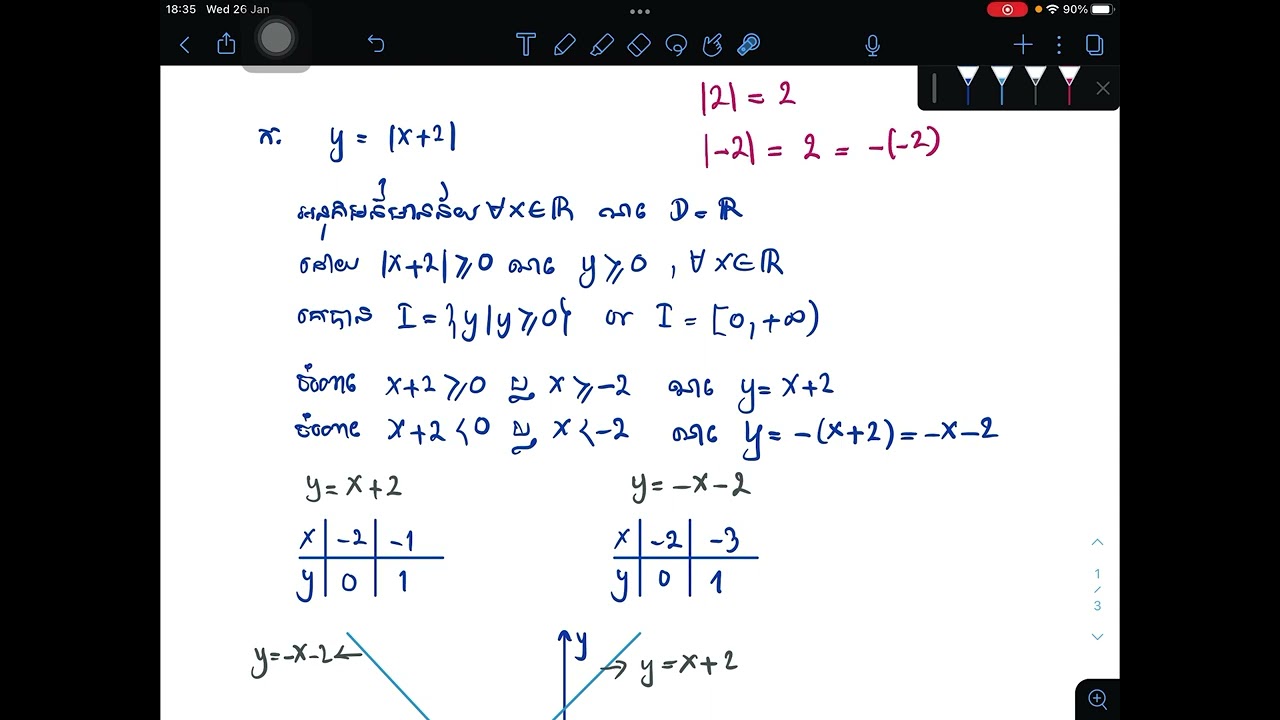 18:35 Wed 26 Jan
90%
|2| = 2
|-2| = 2 = -(-2)
ក. y = |x+2|
អនុគមន៍មានន័យ ∀x∈ℝ នោះ D = ℝ
ដោយ |x+2| ⩾ 0 នោះ y ⩾ 0 , ∀ x∈ℝ
គេបាន I = {y | y ⩾ 0} or I = [0, +∞)
ចំពោះ x+2 ⩾ 0 ឬ x ⩾ -2 នោះ y = x+2
ចំពោះ x+2 < 0 ឬ x < -2 នោះ y = -(x+2) = -x-2
y = x+2
y = -x-2
x | -2 | -1
y | 0 | 1
x | -2 | -3
y | 0 | 1
y = -x-2 ←
y
→ y = x+2
1
/
3